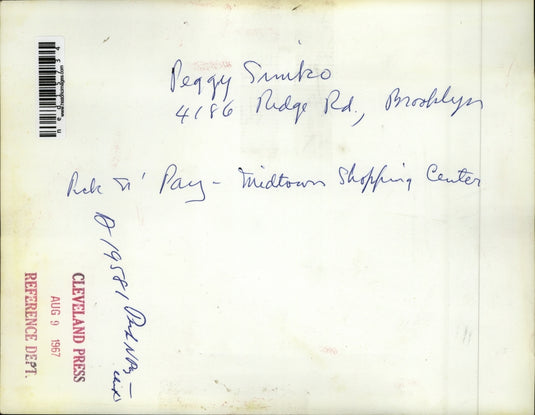 Peggy Simko
4186 Ridge Rd., Brooklyn
Pick N' Pay - Midtown Shopping Center
A 19581
CLEVELAND PRESS
AUG 9 1967
REFERENCE DEPT.